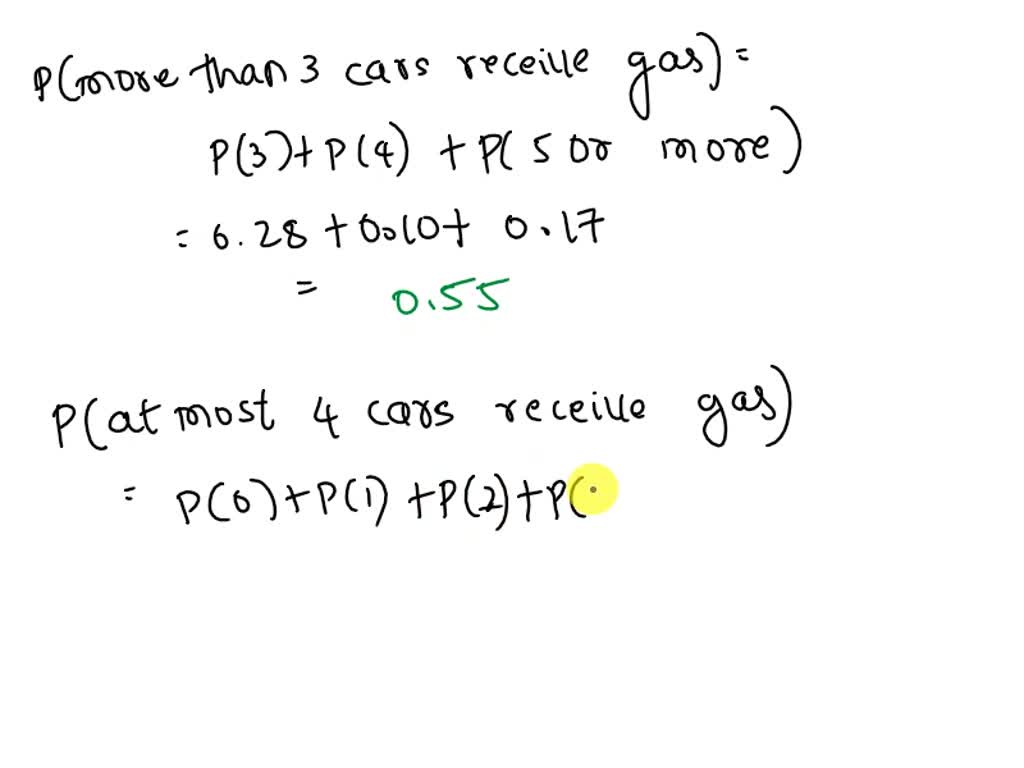 P(more than 3 cars receille gas) =
P(3)+P(4) + P( 5 or more)
= 0.28 + 0.10 + 0.17
= 0.55
P(at most 4 cars receille gas)
= P(0)+P(1) +P(2)+P(